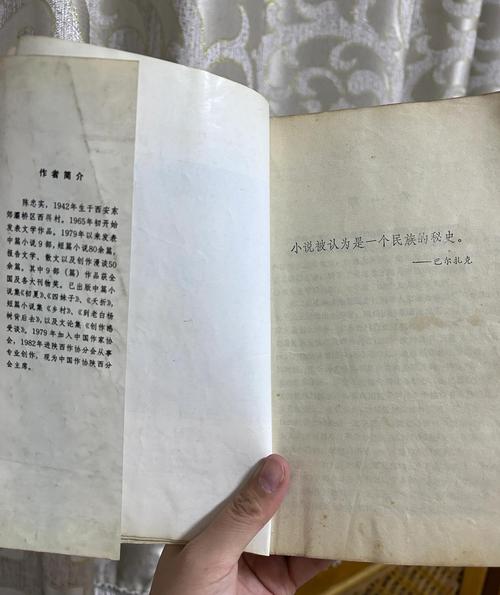 作者简介
陈忠实，1942年生于西安东
郊灞桥区西蒋村。1965年初开始
发表文学作品。1979年以来发表
中篇小说9部，短篇小说80余篇，
报告文学、散文以及创作漫谈50
余篇，其中9部（篇）作品获全
国及各大刊物奖。已出版中篇小
说集《初夏》、《四妹子》、《夭折》，
短篇小说集《乡村》、《到老白杨
树背后去》，以及文论集《创作感
受谈》。1979年加入中国作家协
会，1982年进陕西作协分会从事
专业创作，现为中国作协陕西分
会主席。
小说被认为是一个民族的秘史。
——巴尔扎克